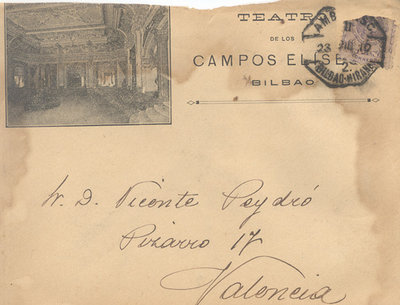 TEATR
DE LOS
CAMPOS EL SE
BILBAO
AMB
23 JUL 10
2
BILBAO-MIRANDA
W. D. Vicente Peydró
Pizarro 17
Valencia